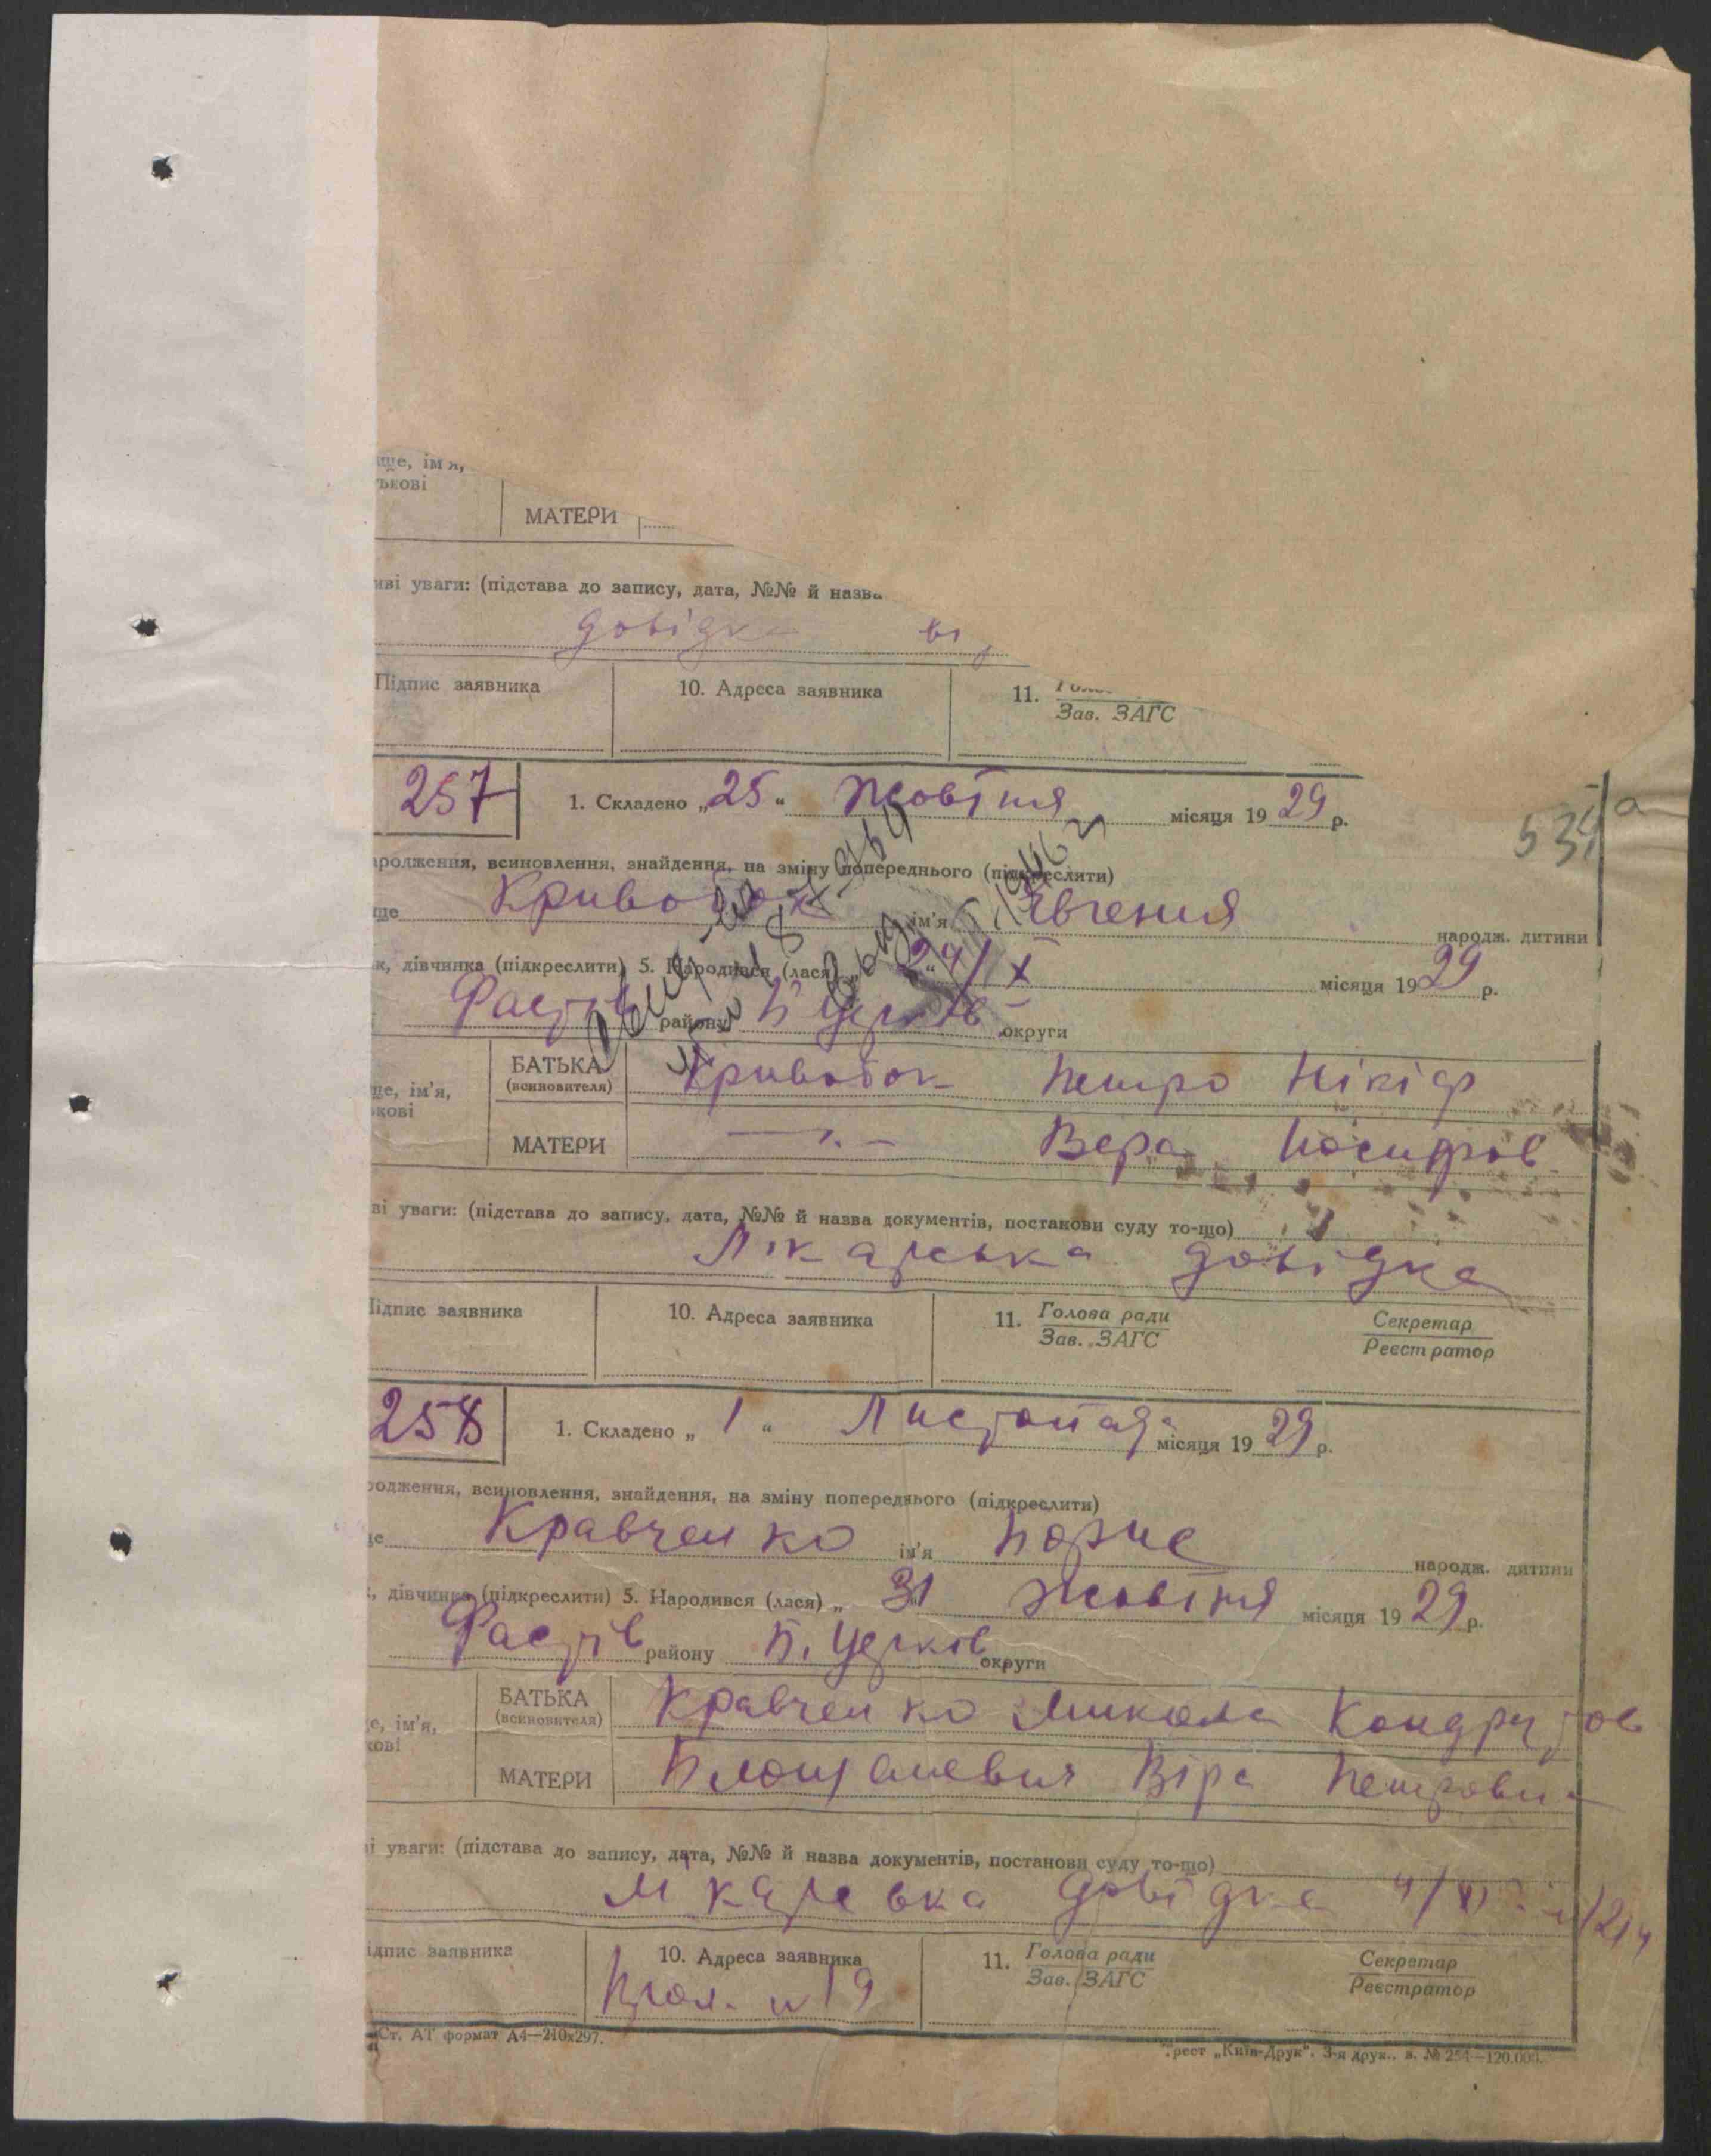 ще, ім'я,
ькові
МАТЕРИ
иві уваги: (підстава до запису, дата, №№ й назва
довідка ві
Підпис заявника 10. Адреса заявника 11.
Зав. ЗАГС
257 1. Складено „25“ Жовтня місяця 1929 р.
ародження, всиновлення, знайдення, на зміну попереднього (підкреслити)
ще Кривобок ім'я Євгения народж. дитини
к, дівчинка (підкреслити) 5. Народився (лася) „24/X місяця 1929 р.
Фастів району Б Церків округи
БАТЬКА Кривобок Петро Нікіф
(всиновителя)
ще, ім'я,
ькові
МАТЕРИ —„— Вера Йосипов
ві уваги: (підстава до запису, дата, №№ й назва документів, постанови суду то-що)
Лікарська довідка
Підпис заявника 10. Адреса заявника 11. Голова ради Секретар
Зав. ЗАГС Реєстратор
534а
258 1. Складено „1“ Листопада місяця 1929 р.
родження, всиновлення, знайдення, на зміну попереднього (підкреслити)
ще Кравченко ім'я Борис народж. дитини
к, дівчинка (підкреслити) 5. Народився (лася) „31 Жовтня місяця 1929 р.
Фастів району Б. Церков округи
БАТЬКА Кравченко Микола Кондратов
(всиновителя)
е, ім'я,
кові
МАТЕРИ Віра Петровна
і уваги: (підстава до запису, дата, №№ й назва документів, постанови суду то-що)
Лікарська довідка
ідпис заявника 10. Адреса заявника 11. Голова ради Секретар
Зав. ЗАГС Реєстратор
Ст. АТ формат А4—210х297.
Трест „Київ-Друк“. 3-я друк.. з. № 254—120.000.